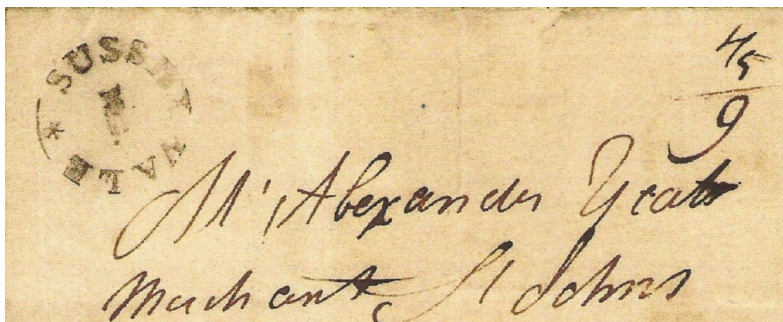 SUSSEX VALE *
4/5
9
Mr Alexander Yeats
Merchant, St Johns